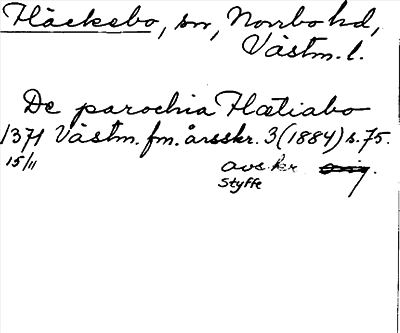 Fläckebo, sn, Norrbo hd,
Västm. l.
De parochia Flætiabo
1371 Västm. fm. årsskr. 3 (1884) s. 75.
15/11 avskr. orig.
Styffe